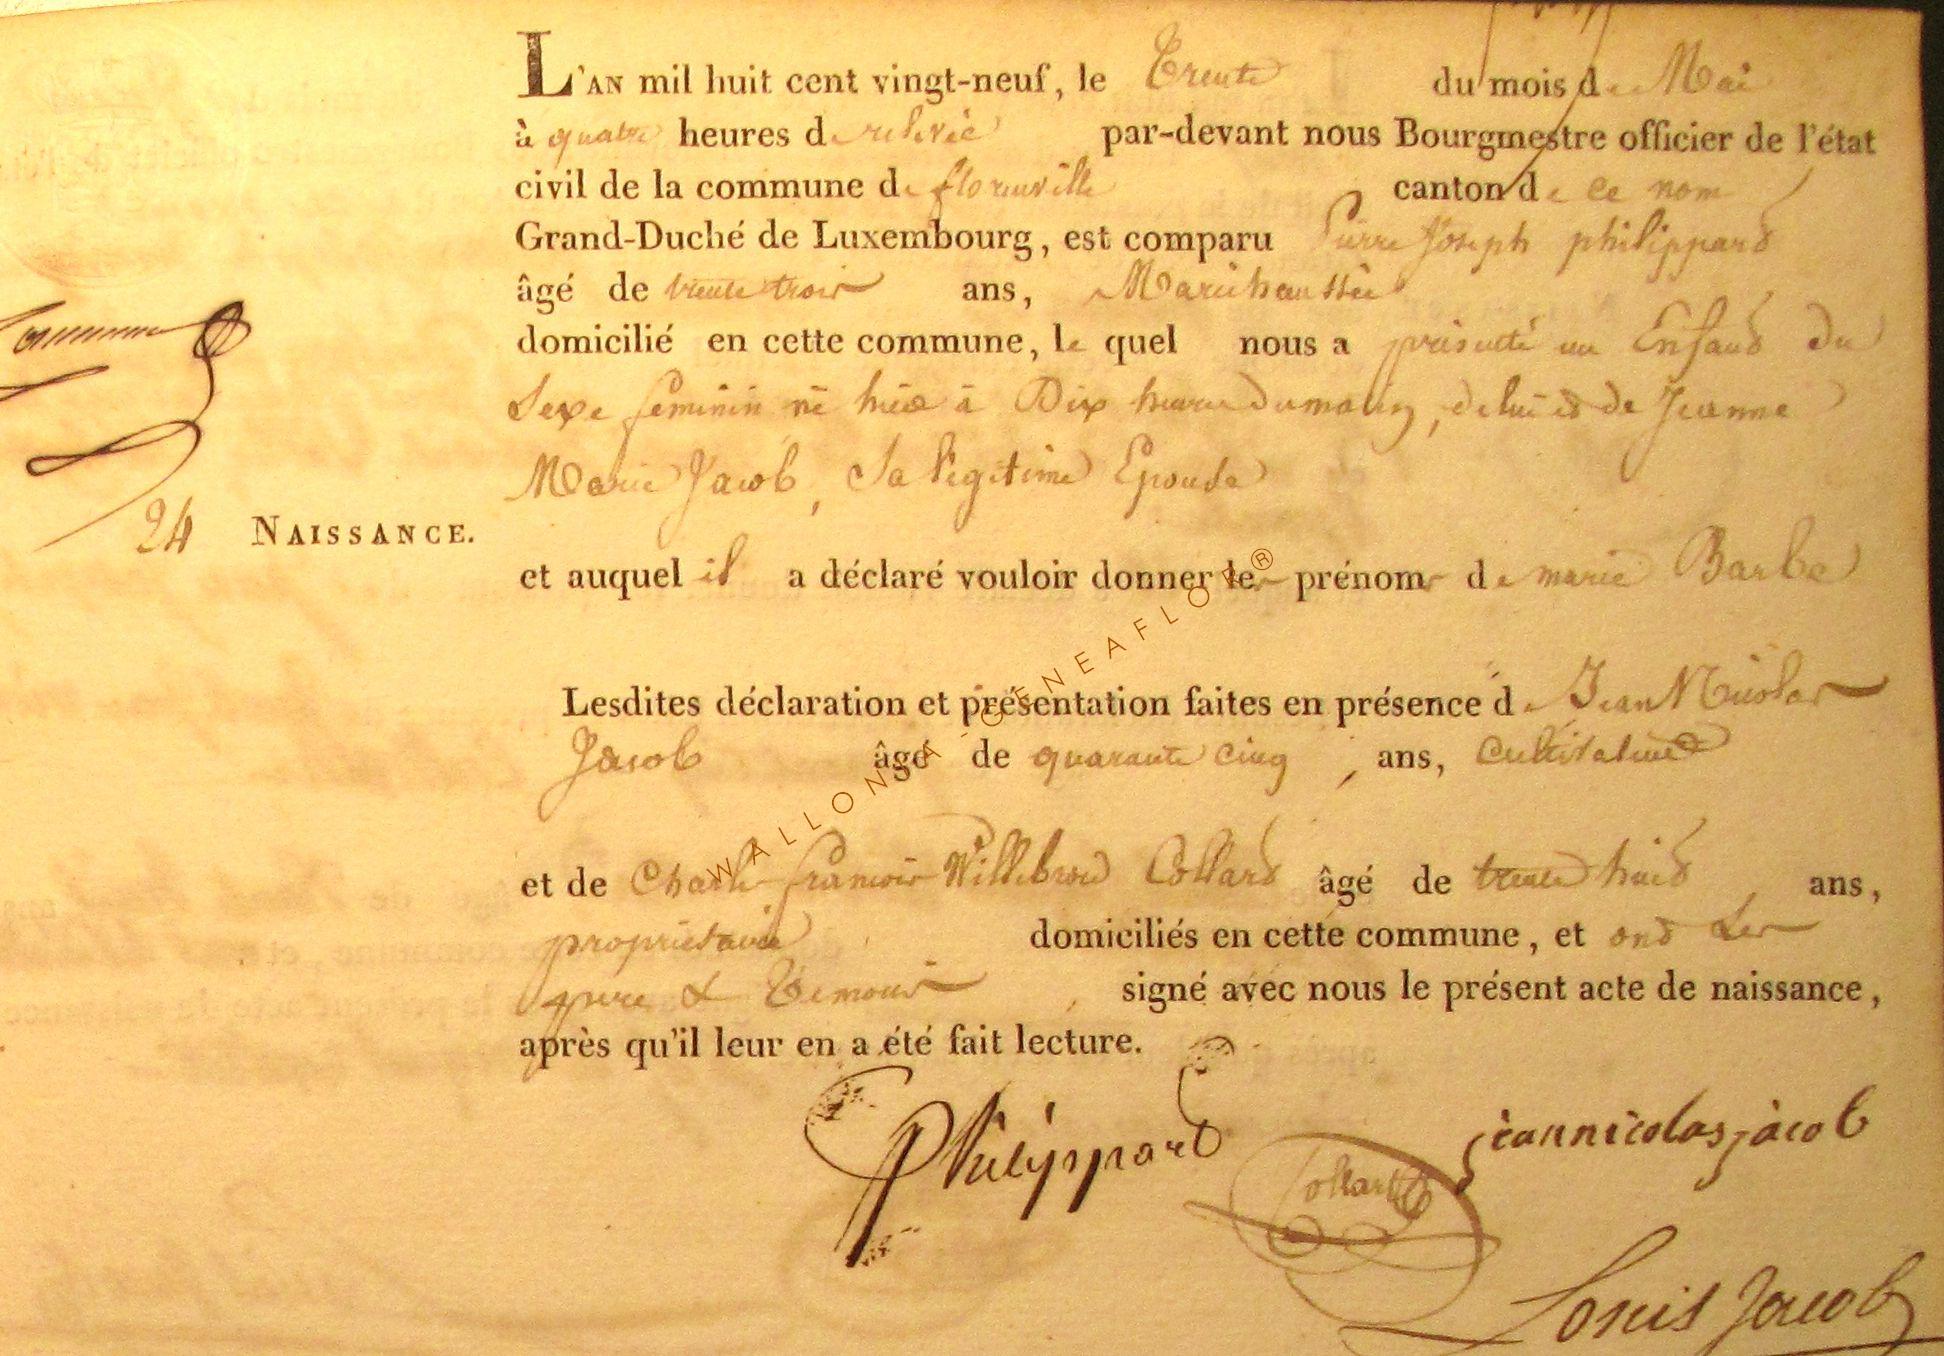 L'AN mil huit cent vingt-neuf, le Trente du mois de Mai
à quatre heures de relevée par-devant nous Bourgmestre officier de l'état
civil de la commune de florenville canton de ce nom
Grand-Duché de Luxembourg, est comparu Pierre Joseph philippard
âgé de trente trois ans, Marechaussée
domicilié en cette commune, le quel nous a présenté un Enfand du
Sexe feminin né hier à Dix heures du matin, de lui et de Jeanne
Marie Jacob, Sa legitime Epouse
24 NAISSANCE.
et auquel il a déclaré vouloir donner les prénoms de marie Barbe
Lesdites déclaration et présentation faites en présence de Jean Nicolas
Jacob âgé de quarante cinq ans, Cultivateur
et de Charle francois Willebrod Collard âgé de trente huit ans,
propriétaire domiciliés en cette commune, et ont les
pere & Temoins signé avec nous le présent acte de naissance,
après qu'il leur en a été fait lecture.
Philippard
jean nicolas jacob
Collard
Louis Jacob
WALLONIA-GENEAFLOR®